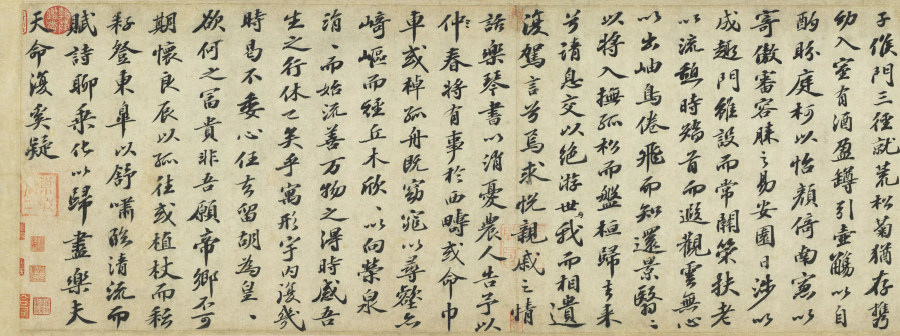 子候門三徑就荒松菊猶存携
幼入室有酒盈罇引壺觴以自
酌眄庭柯以怡顏倚南窻以
寄傲審容膝之易安園日涉以
成趣門雖設而常關策扶老
以流憩時矯首而遐觀雲無心
以出岫鳥倦飛而知還景翳〻
以將入撫孤松而盤桓歸去來
兮請息交以絕游世與我而相遺
復駕言兮焉求悅親戚之情
話樂琴書以消憂農人告予以
仲春將有事於西疇或命巾
車或棹孤舟既窈窕以尋壑亦
崎嶇而經丘木欣〻以向榮泉
涓〻而始流善萬物之得時感吾
生之行休已矣乎寓形宇內復幾
時曷不委心任去留胡為皇〻
欲何之富貴非吾願帝鄉不可
期懷良辰以孤往或植杖而耘
耔登東皐以舒嘯臨清流而
賦詩聊乘化以歸盡樂夫
天命復奚疑